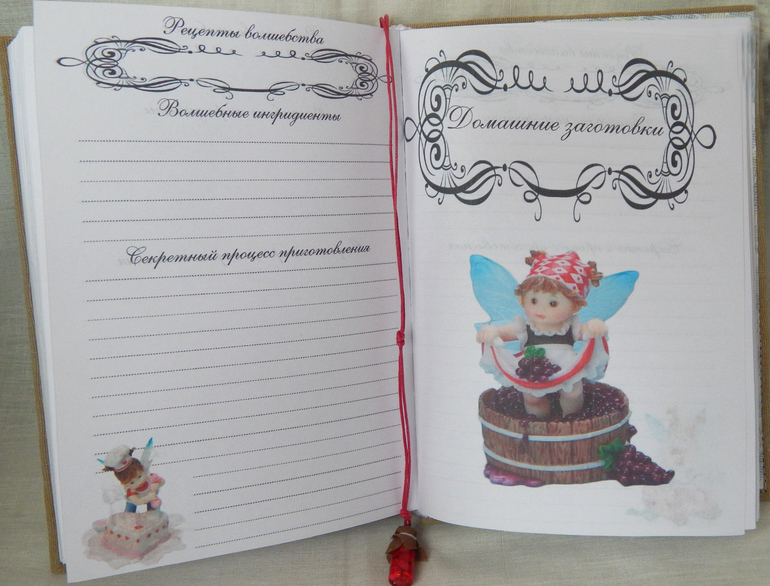 Рецепты волшебства
Волшебные ингридиенты
Секретный процесс приготовления
Домашние заготовки